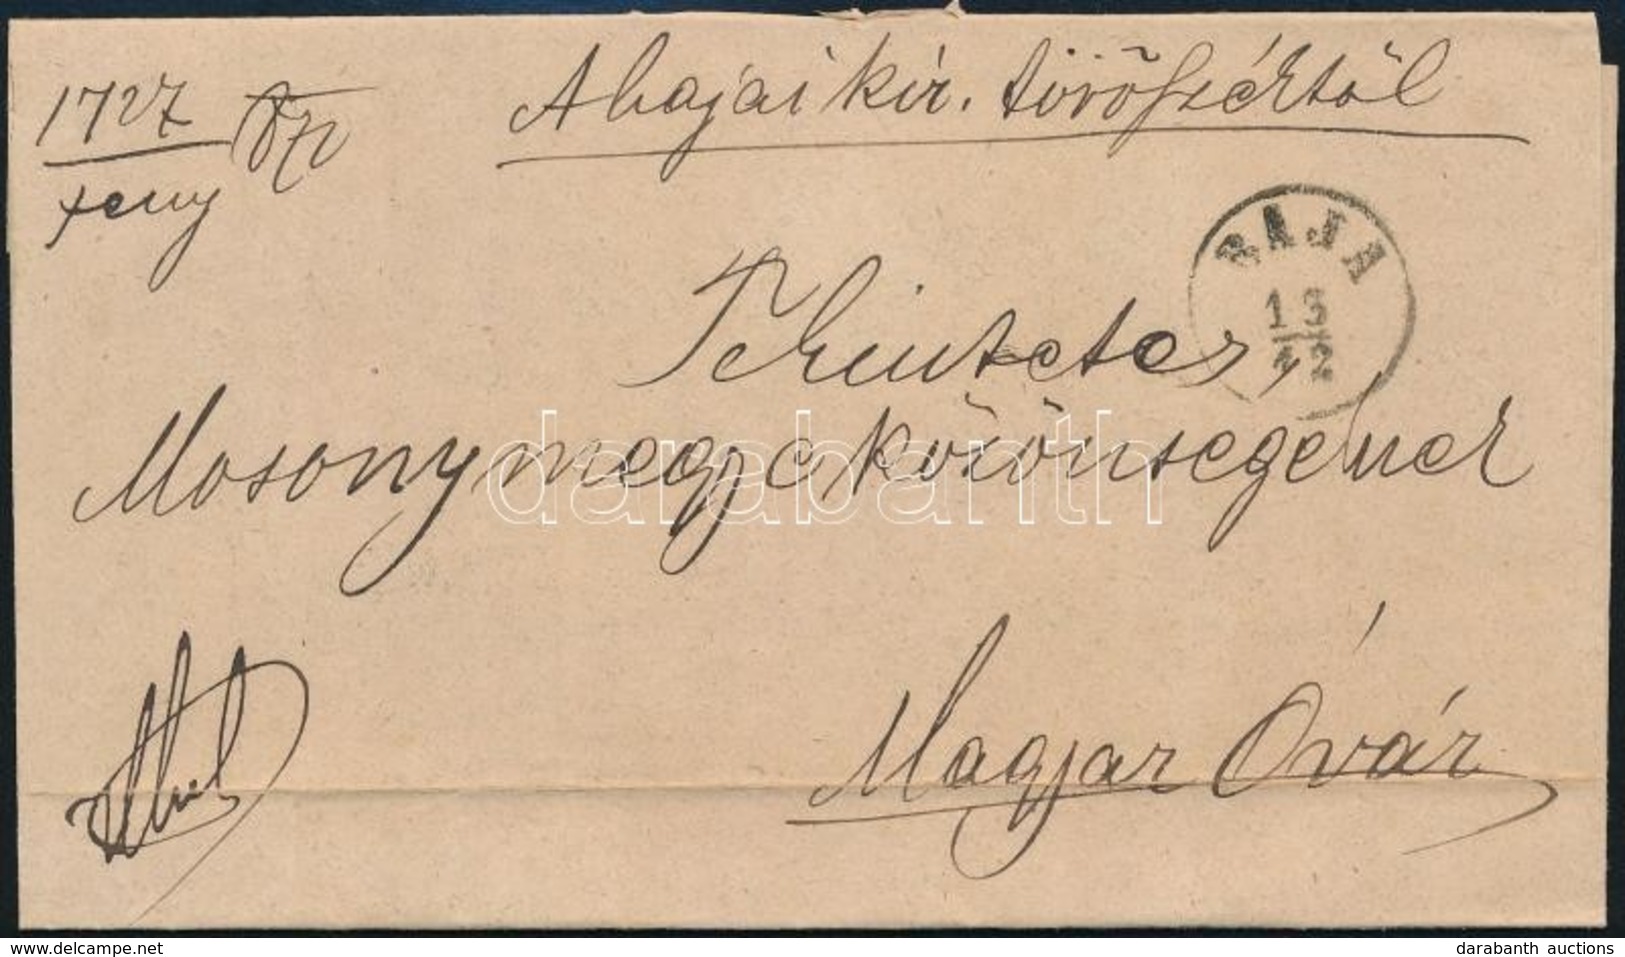 A bajai kir. törvőszéktől
1727 872
feny
BAJA
13
12
Tekintetes,
Mosonymegye közönségének
darabanth
Magyar Óvár
www.delcampe.net
darabanth auctions